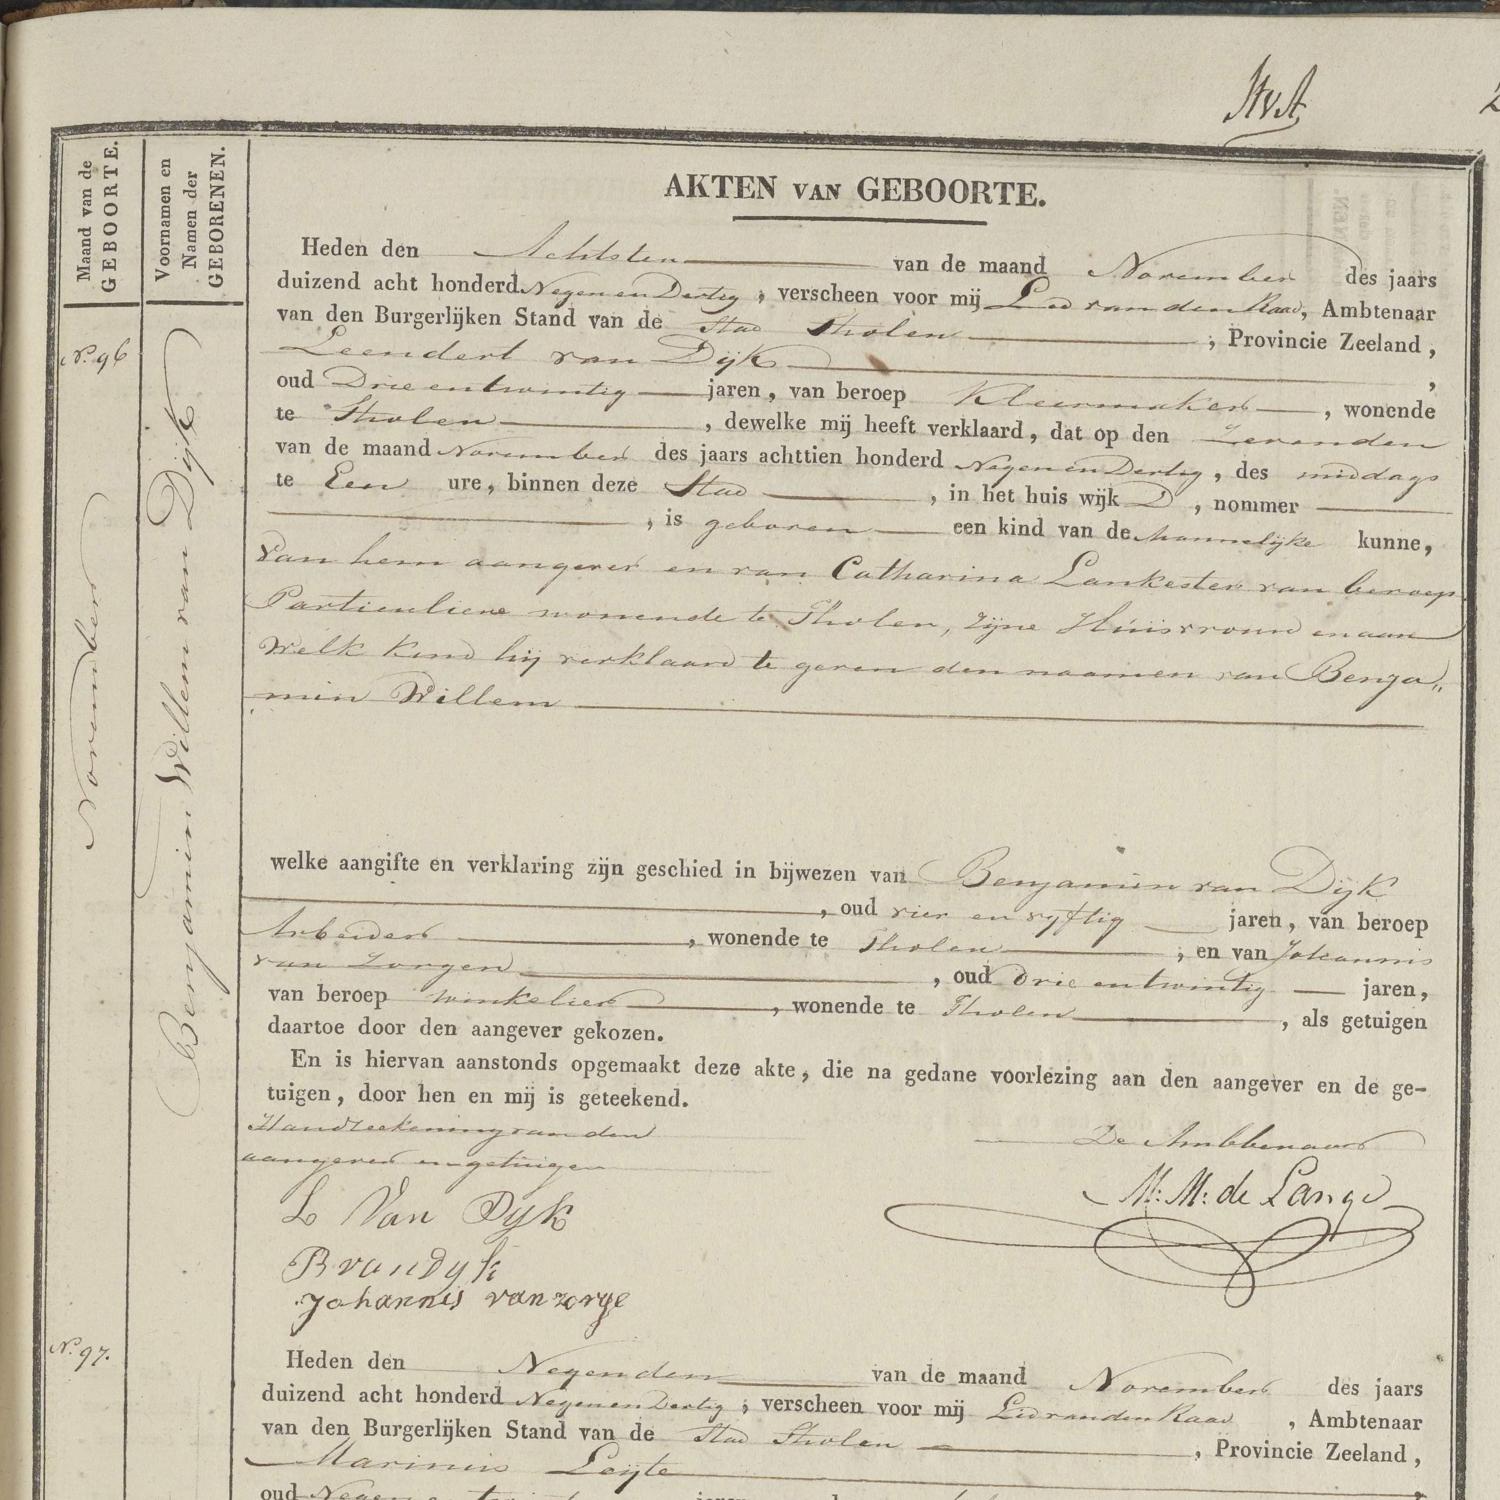 AKTEN VAN GEBOORTE.
Maand van de
GEBOORTE.
Voornamen en
Namen der
GEBORENEN.
N.º 96
November
Benjamin Willem van Dijk
Heden den Achtsten van de maand November des jaars
duizend acht honderd Negen en Dertig, verscheen voor mij Lid van den Raad, Ambtenaar
van den Burgerlijken Stand van de Stad Tholen, Provincie Zeeland,
Leendert van Dijk,
oud Drie en twintig jaren, van beroep Kleermaker, wonende
te Tholen, dewelke mij heeft verklaard, dat op den Zevenden
van de maand November des jaars achttien honderd Negen en Dertig, des middags
te Een ure, binnen deze Stad, in het huis wijk D, nommer
, is geboren een kind van de Mannelijke kunne,
Van hem aangever en van Catharina Lankester van beroep
Particuliere wonende te Tholen, zijne Huisvrouw en aan
Welk kind hij verklaard te geven den naamen van Benja„
min Willem
welke aangifte en verklaring zijn geschied in bijwezen van Benjamin van Dijk
, oud vier en vyftig jaren, van beroep
Arbeider, wonende te Tholen, en van Johannis
van Zorgen, oud Drie en twintig jaren,
van beroep winkelier, wonende te Tholen, als getuigen
daartoe door den aangever gekozen.
En is hiervan aanstonds opgemaakt deze akte, die na gedane voorlezing aan den aangever en de ge-
tuigen, door hen en mij is geteekend.
Handteekening van den
aangever en getuigen
De Ambtenaar
L Van Dyk
M: M: de Lange
B van Dyk
Johannis van zorge
N.º 97.
Heden den Negenden van de maand November des jaars
duizend acht honderd Negen en Dertig, verscheen voor mij Lid van den Raad, Ambtenaar
van den Burgerlijken Stand van de Stad Tholen, Provincie Zeeland,
Marinus Leijte
oud Negen